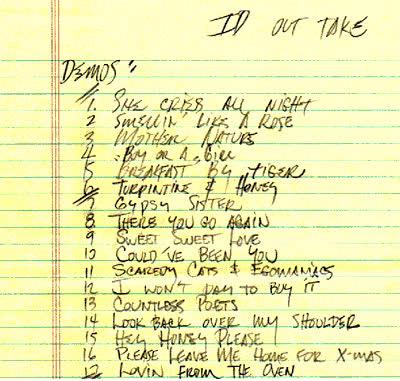 ID OUT TAKE
DEMOS:
1. SHE CRIES ALL NIGHT
2 SMELLIN' LIKE A ROSE
3 MOTHER NATURE
4 BOY OR A GIRL
5 BREAKFAST BY TIGER
6 TURPINTINE & HONEY
7 GYPSY SISTER
8 THERE YOU GO AGAIN
9 SWEET SWEET LOVE
10 COULD'VE BEEN YOU
11 SCAREDY CATS & EGOMANIACS
12 I WON'T PAY TO BUY IT
13 COUNTLESS POETS
14 LOOK BACK OVER MY SHOULDER
15 HEY HONEY PLEASE
16 PLEASE LEAVE ME HOME FOR X-MAS
17 LOVIN FROM THE OVEN